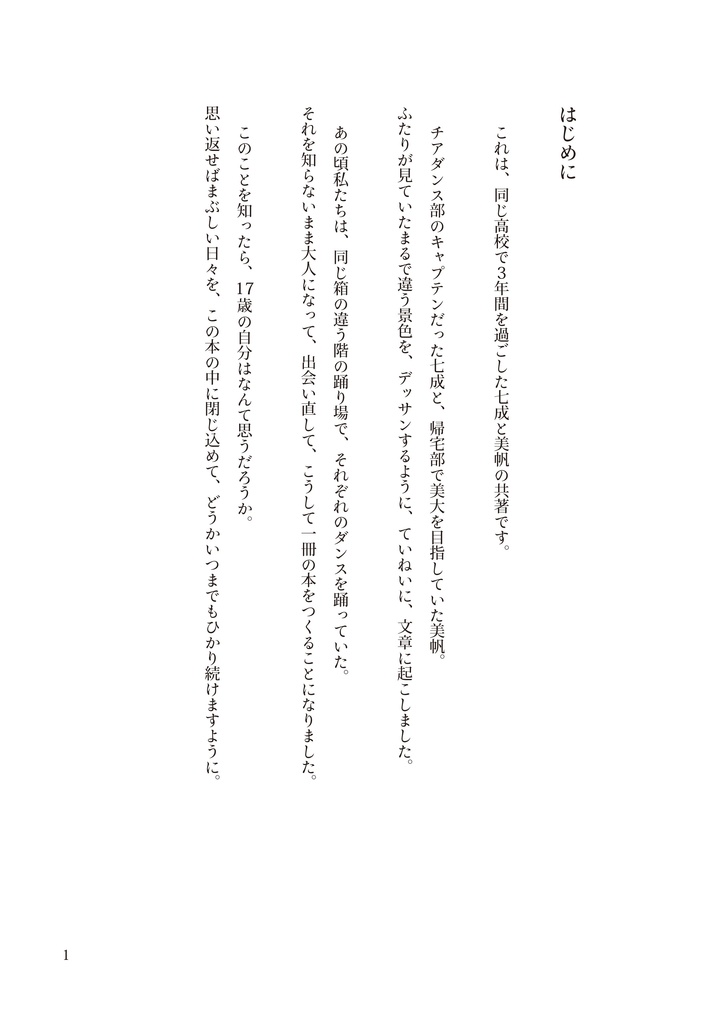 はじめに
これは、同じ高校で3年間を過ごした七成と美帆の共著です。
チアダンス部のキャプテンだった七成と、帰宅部で美大を目指していた美帆。
ふたりが見ていたまるで違う景色を、デッサンするように、ていねいに、文章に起こしました。
あの頃私たちは、同じ箱の違う階の踊り場で、それぞれのダンスを踊っていた。
それを知らないまま大人になって、出会い直して、こうして一冊の本をつくることになりました。
このことを知ったら、17歳の自分はなんて思うだろうか。
思い返せばまぶしい日々を、この本の中に閉じ込めて、どうかいつまでもひかり続けますように。
1